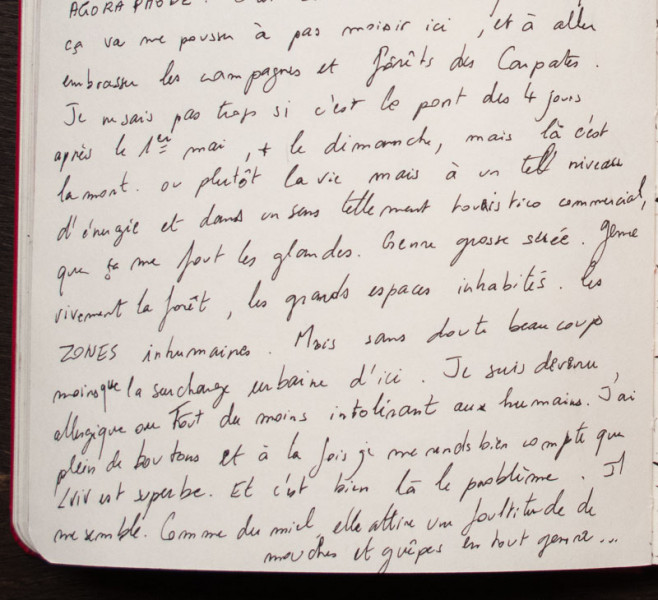 AGORAPHOBE.
ça va me pousser à pas moisir ici, et à aller
embrasser les campagnes et forêts des Carpates.
Je ne sais pas trop si c'est le pont des 4 jours
après le 1er mai, + le dimanche, mais là c'est
la mort. ou plutôt la vie mais à un tell niveau
d'énergie et dans un sens tellement touristico commercial,
que ça me fout les glandes. Genre grosse suée. Genre
vivement la forêt, les grands espaces inhabités. Les
ZONES inhumaines. Mais sans doute beaucoup
moins que la surcharge urbaine d'ici. Je suis devenu
allergique ou tout du moins intolérant aux humains. J'ai
plein de boutons et à la fois je me rends bien compte que
Lviv est superbe. Et c'est bien là le problème. Il
me semble. Comme du miel, elle attire une foultitude de
mouches et guêpes en tout genre...